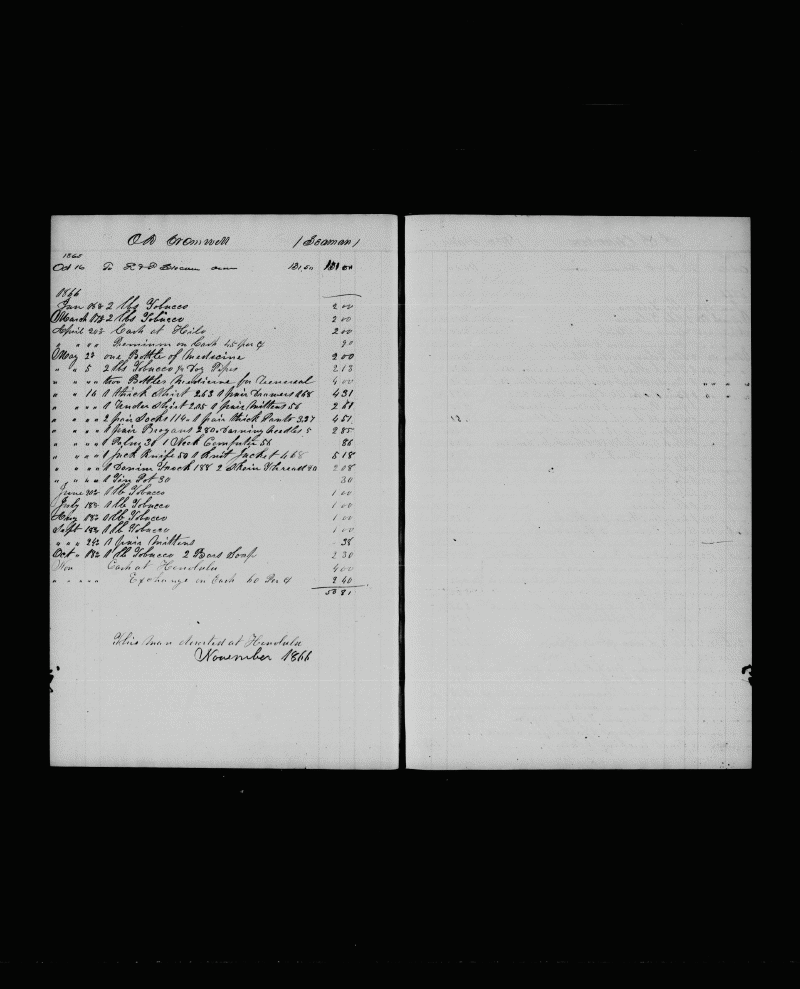 O B Cromwell (Seaman)
1865
Oct 16 To 121.50 121 50
1866
Jan 2 lbs Tobacco 2 00
March 2 lbs Tobacco 2 00
April 20th Cash at Hilo 2 00
" " " Premium on Cash 45 per ct 90
May 2d one Bottle of Medecine 2 00
" " 5 2 lbs Tobacco ½ Doz Pipes 2 13
" " " " two Bottles Medicine for Venereal 4 00
" " 16 1 thick Shirt 263 1 pair Drawers 168 4 31
" " " " 1 Under Shirt 205 1 pair Mittens 56 2 61
" " " " 2 pair Socks 114 1 pair thick Pants 337 4 51
" " " " 1 pair Brogans 280 Darning Needles 5 2 85
" " " " 1 30 1 Neck Comforter 56 86
" " " " 1 Jack Knife 50 1 Knit Jacket 468 5 18
" " " " 1 Denim Frock 188 2 Skein Thread 20 2 08
" " " " 1 Tin Pot 30 30
June 1 lb Tobacco 1 00
July 18th 1 lb Tobacco 1 00
Aug 1 lb Tobacco 1 00
Sept 18th 1 lb Tobacco 1 00
" " " 24th 1 pair Mittens 38
Oct " 18th 1 lb Tobacco 2 Bars Soap 2 30
Nov Cash at Honolulu 4 00
" " " " " Exchange on Cash 60 Per ct 2 40
50 81
This man deserted at Honolulu
November 1866